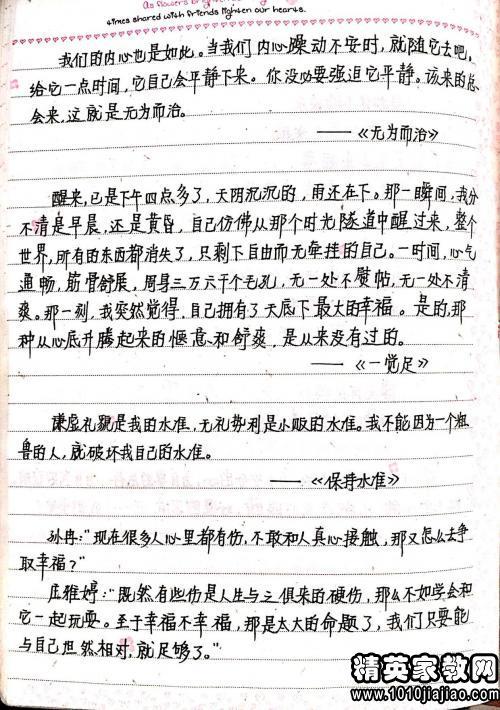 As flowers brighten
times shared with friends lighten our hearts.
我们的内心也是如此。当我们内心躁动不安时,就随它去吧。
给它一点时间,它自己会平静下来。你没必要强迫它平静。该来的总
会来,这就是无为而治。
——《无为而治》
醒来,已是下午四点多了,天阴沉沉的,雨还在下。那一瞬间,我分
不清是早晨,还是黄昏,自己仿佛从那个时光隧道中醒过来,整个
世界,所有的东西都消失了,只剩下自由而无牵挂的自己。一时间,心气
通畅,筋骨舒展,周身三万六千个毛孔,无一处不熨帖,无一处不清
爽。那一刻,我突然觉得,自己拥有了天底下最大的幸福。是的,那
种从心底升腾起来的惬意和舒爽,是从来没有过的。
——《一觉足》
谦虚礼貌是我的水准,无礼势利是小贩的水准。我不能因为一个粗
鲁的人,就破坏我自己的水准。
——《保持水准》
孙冉:“现在很多人心里都有伤,不敢和人真心接触,那又怎么去争
取幸福?”
庄雅婷:“既然有些伤是人生与之俱来的硬伤,那么不如学会和
它一起玩耍。至于幸福不幸福,那是太大的命题了,我们只要能
与自己坦然相对,就足够了。”
精英家教网
www.1010jiajiao.com